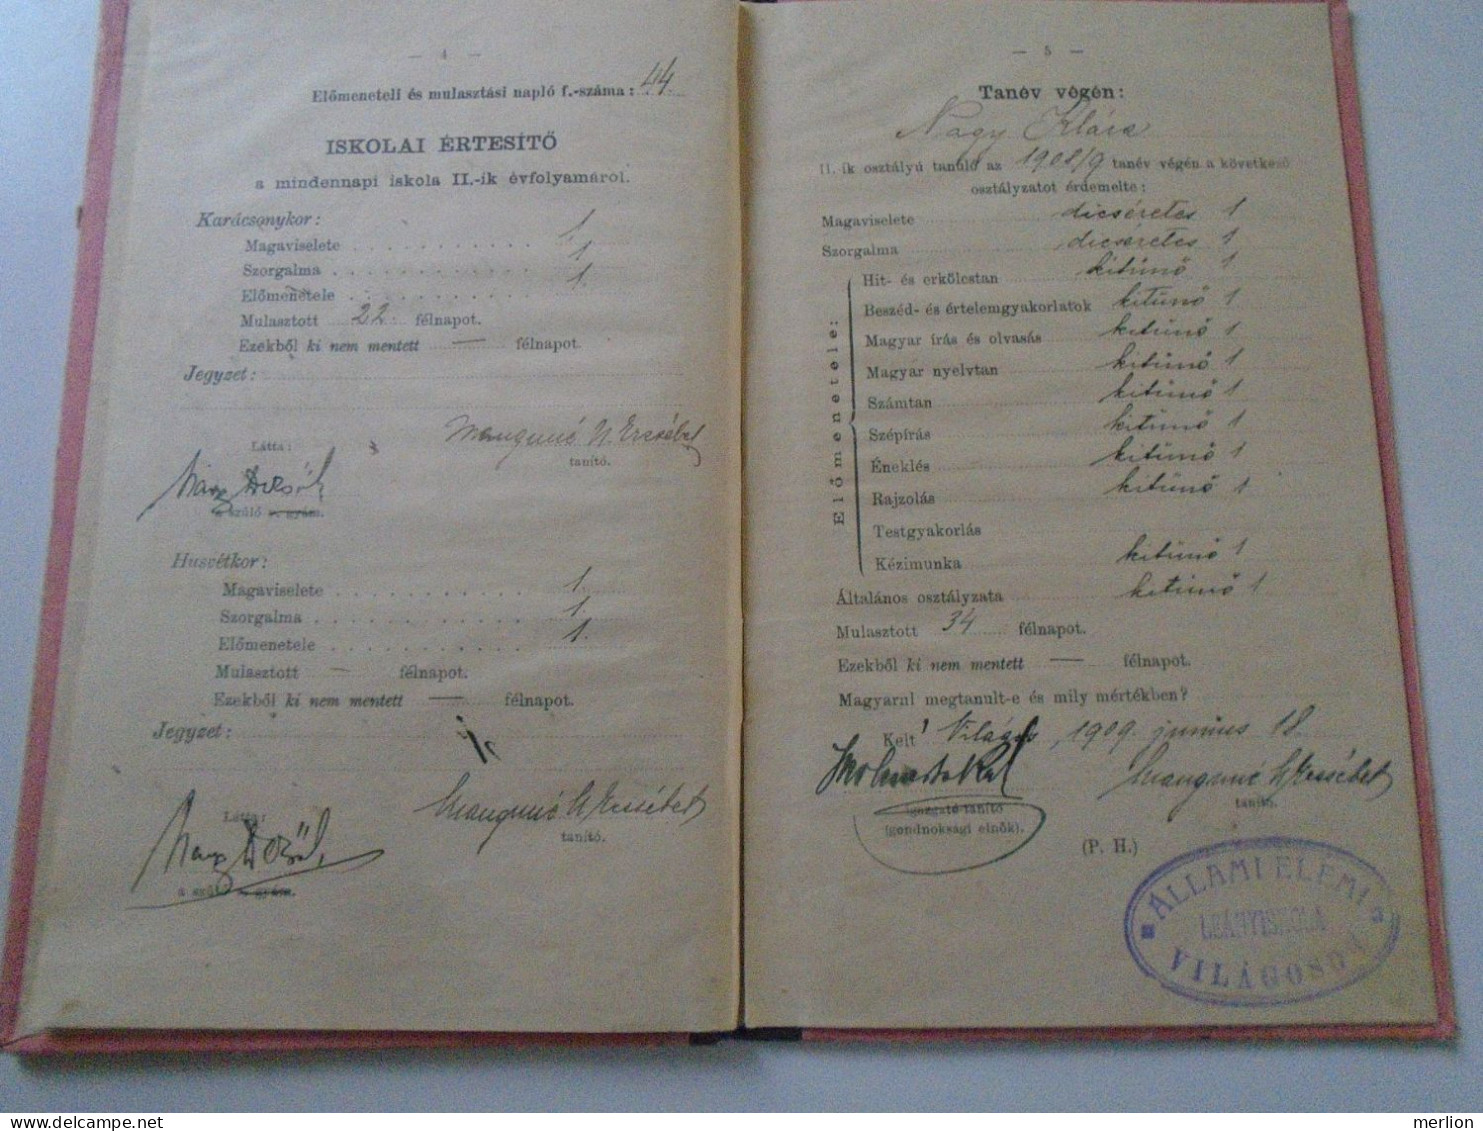 — 4 —
Előmeneteli és mulasztási napló f.-száma: 44
ISKOLAI ÉRTESÍTŐ
a mindennapi iskola II.-ik évfolyamáról.
Karácsonykor:
Magaviselete 1
Szorgalma 1
Előmenetele 1.
Mulasztott 22 félnapot.
Ezekből ki nem mentett — félnapot.
Jegyzet:
Látta:
N. Erzsébet
tanító.
Nagy Dezső
a szülő v. gyám.
Husvétkor:
Magaviselete 1.
Szorgalma 1.
Előmenetele 1.
Mulasztott — félnapot.
Ezekből ki nem mentett — félnapot.
Jegyzet:
Látta:
N Erzsébet
tanító.
Nagy Dezső
a szülő v. gyám.
— 5 —
Tanév végén:
Nagy Klára
II.-ik osztályú tanuló az 1908/9 tanév végén a következő
osztályzatot érdemelte:
Magaviselete dicséretes 1
Szorgalma dicséretes 1
Előmenetele:
Hit- és erkölcstan kitünő 1
Beszéd- és értelemgyakorlatok kitünő 1
Magyar írás és olvasás kitünő 1
Magyar nyelvtan kitünő 1
Számtan kitünő 1
Szépírás kitünő 1
Éneklés kitünő 1
Rajzolás kitünő 1
Testgyakorlás
Kézimunka kitünő 1
Általános osztályzata kitünő 1
Mulasztott 34 félnapot.
Ezekből ki nem mentett — félnapot.
Magyarul megtanult-e és mily mértékben?
Kelt Világos, 1909. junius 18.
N Erzsébet
igazgató-tanító
tanító.
(gondnoksági elnök).
(P. H.)
ÁLLAMI ELEMI
LEÁNYISKOLA
VILÁGOSON
www.delcampe.net
merlion